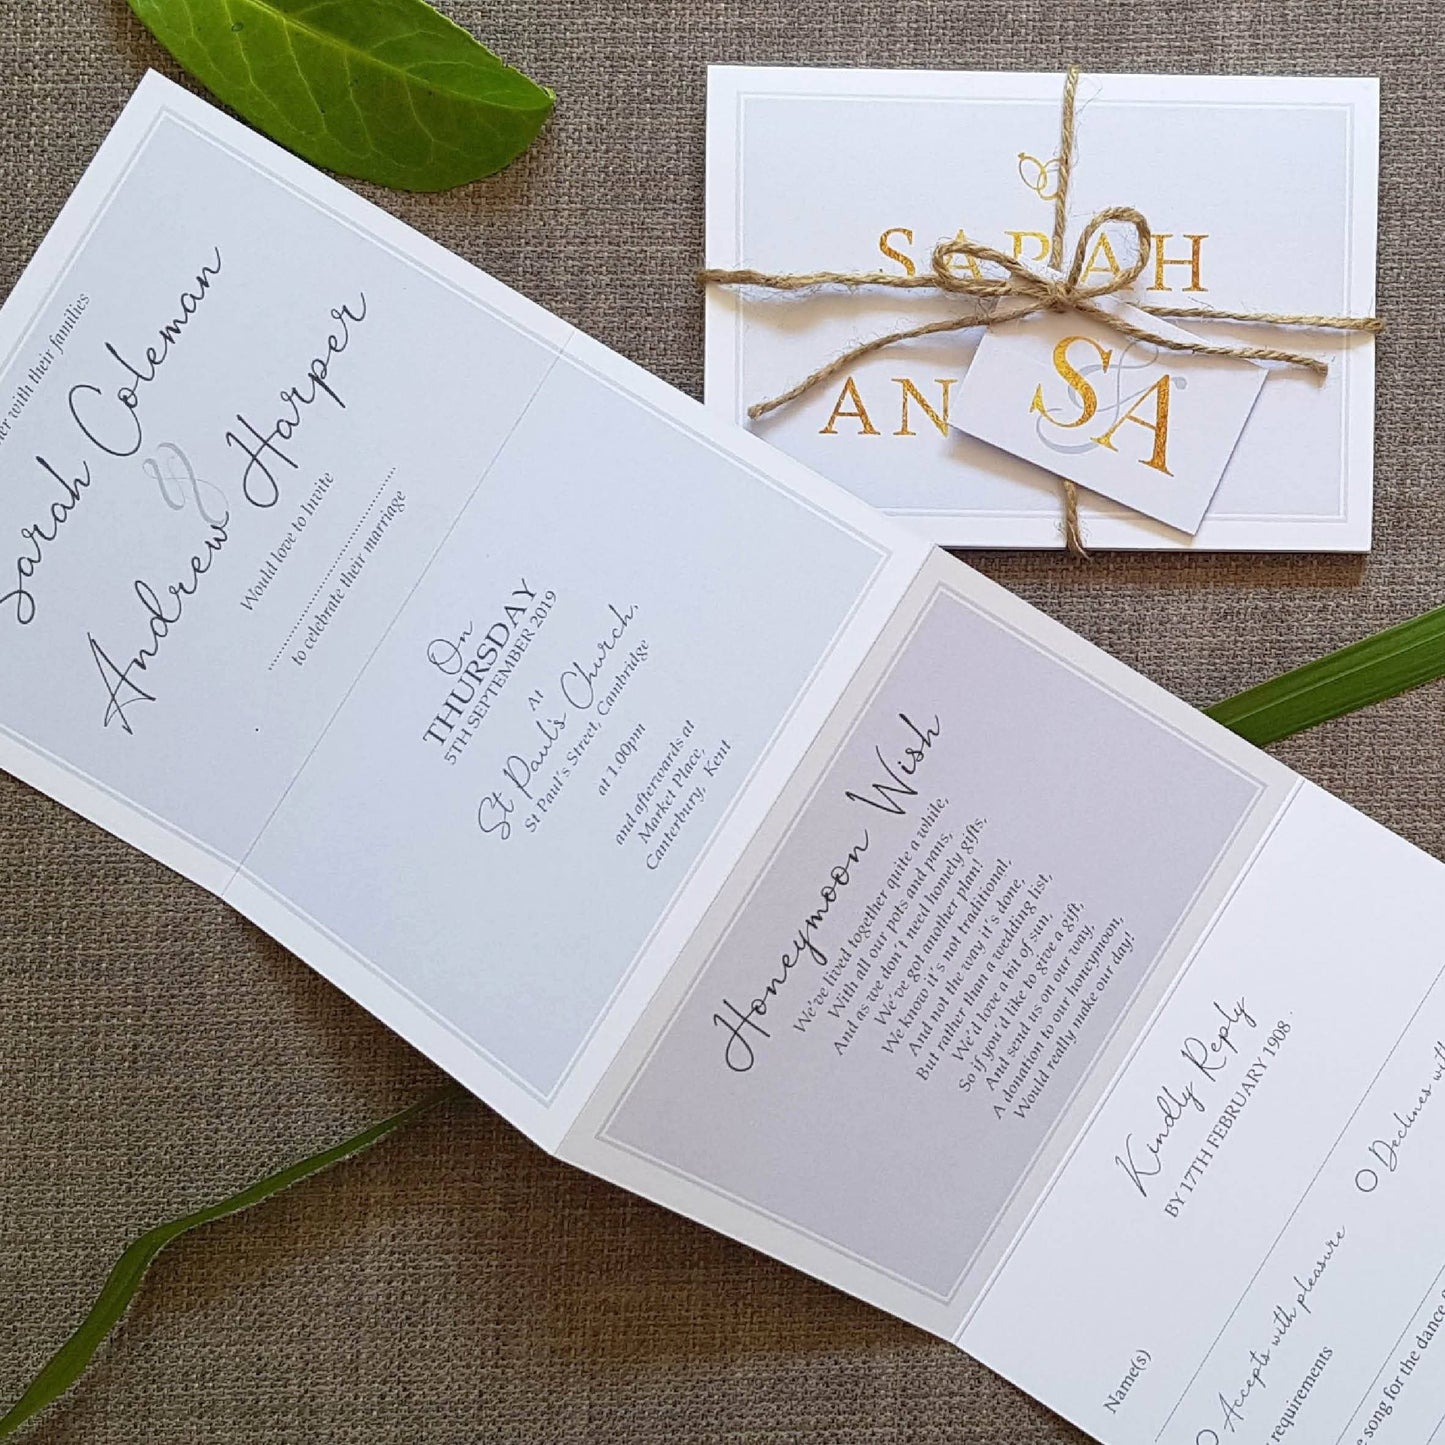 with their families
Sarah Coleman
&
Andrew Harper
Would love to Invite
to celebrate their marriage
On
THURSDAY
5TH SEPTEMBER 2019
AT
St Paul's Church,
St Paul's Street, Cambridge
at 1.00pm
and afterwards at
Market Place,
Canterbury,
Kent
SARAH
AN
S&A
Honeymoon Wish
We've lived together quite a while,
With all our pots and pans,
And as we don't need homely gifts,
We've got another plan!
We know it's not traditional,
And not the way it's done,
But rather than a wedding list,
We'd love a bit of sun,
So if you'd like to give a gift,
And send us on our way,
A donation to our honeymoon,
Would really make our day!
Kindly Reply
BY 17TH FEBRUARY 1908.
Name(s)
Accepts with pleasure
Declines with
requirements
song for the dance